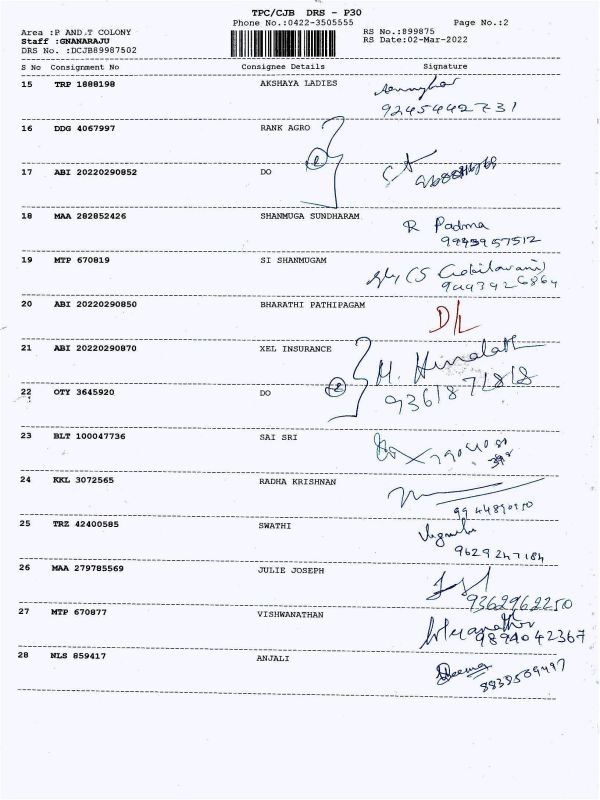 TPC/CJB DRS - P30
Phone No.:0422-3505555 Page No.:2
Area :P AND.T COLONY RS No.:899875
Staff :GNANARAJU RS Date:02-Mar-2022
DRS No. :DCJB89987502
S No Consignment No Consignee Details Signature
15 TRP 1888198 AKSHAYA LADIES
9245442731
16 DDG 4067997 RANK AGRO
17 ABI 20220290852 DO
18 MAA 282852426 SHANMUGA SUNDHARAM R Padma
9995957512
19 MTP 670819 SI SHANMUGAM
9443426864
20 ABI 20220290850 BHARATHI PATHIPAGAM D/L
21 ABI 20220290870 XEL INSURANCE M. Himalath
22 OTY 3645920 DO 2 9361871818
23 BLT 100047736 SAI SRI
24 KKL 3072565 RADHA KRISHNAN
25 TRZ 42400585 SWATHI
9629247184
26 MAA 279785569 JULIE JOSEPH
9362962250
27 MTP 670877 VISHWANATHAN
9894042367
28 NLS 859417 ANJALI
8838509497